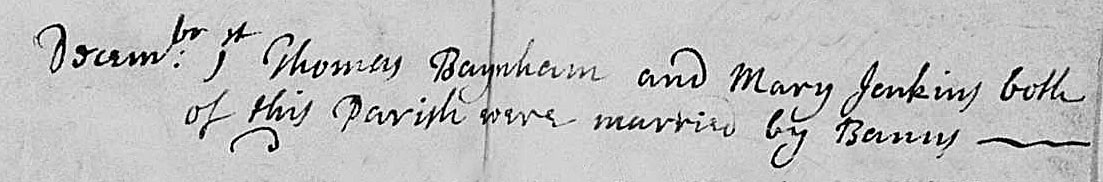 Decembr: 1st Thomas Baynham and Mary Jenkins both
of this Parish were married by Banns